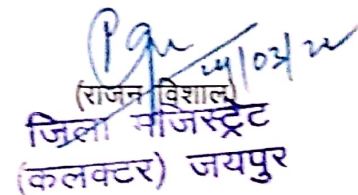 24/03/22
(राजन विशाल)
जिला मजिस्ट्रेट
(कलक्टर) जयपुर